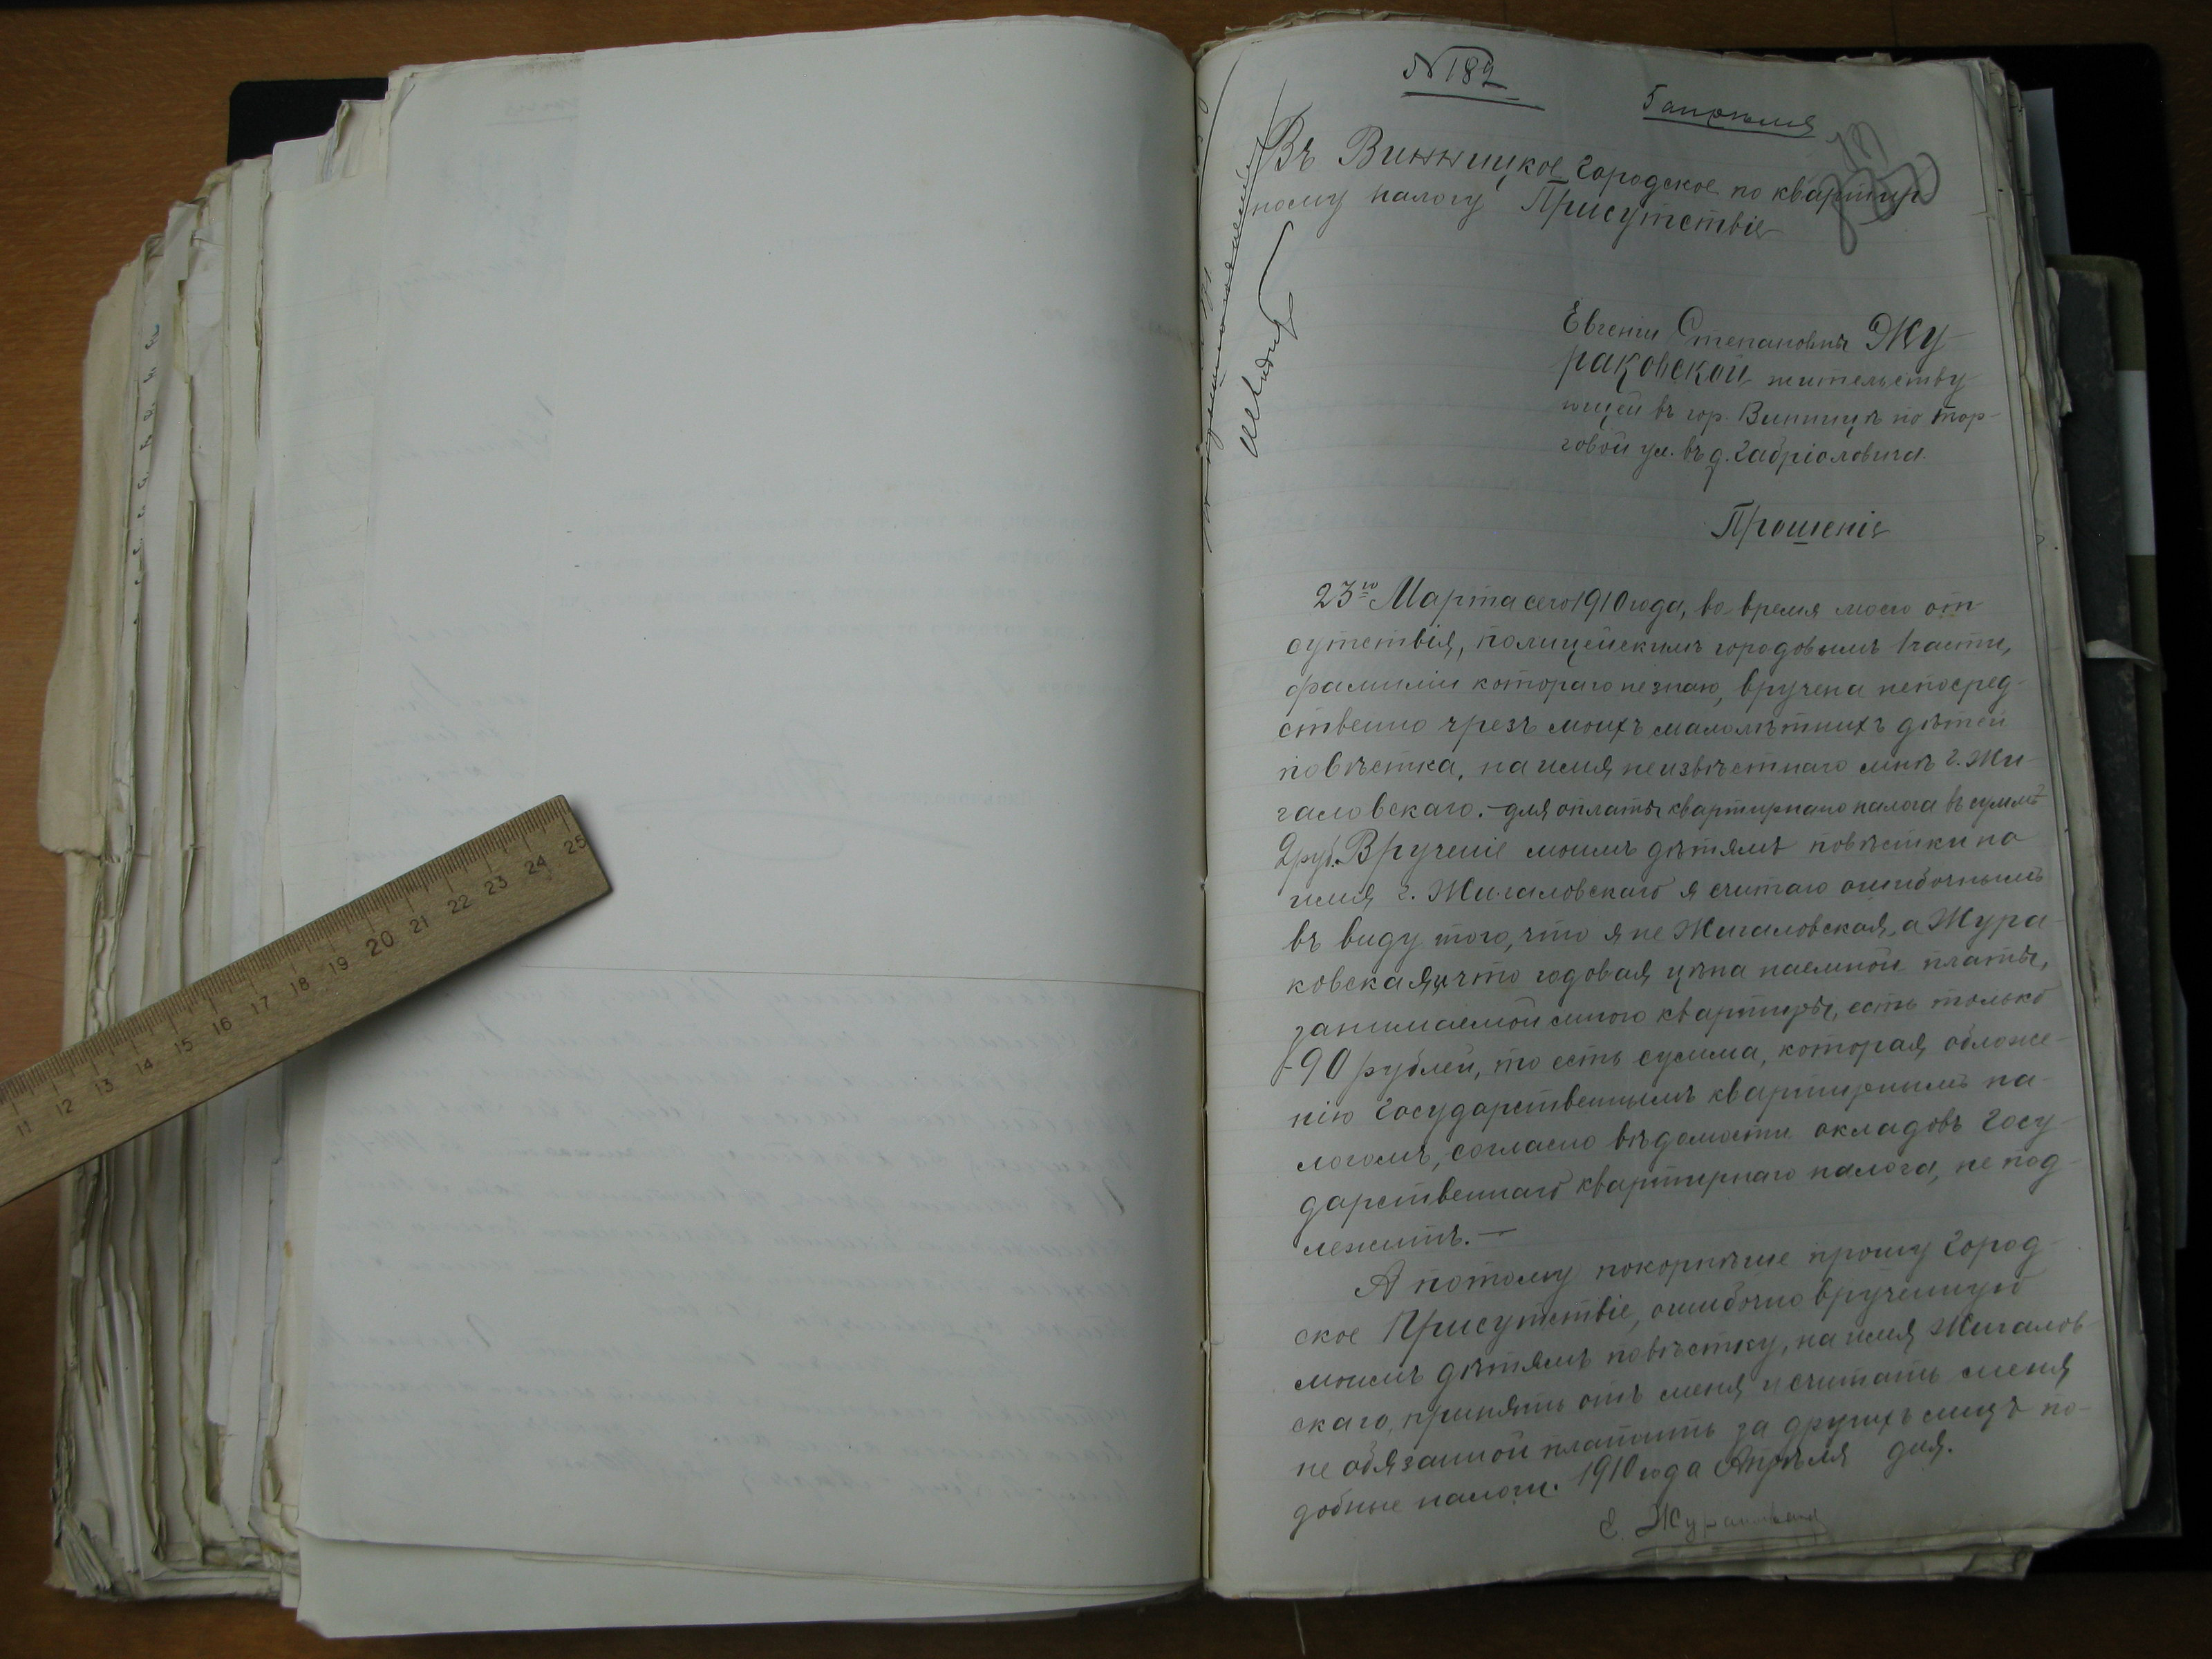 № 182
5 апрѣля
Въ Винницкое Городское по квартир-
ному налогу Присутствіе
Евгеніи Степановны Жу-
раковской жительству-
ющей въ гор. Винницѣ по Тор-
говой ул. въ д. Габріоловича.
Прошеніе
23го Марта сего 1910 года, во время моего от-
сутствія, полицейскимъ городовымъ 1 части,
фамиліи котораго не знаю, вручена непосред-
ственно чрезъ моихъ малолѣтнихъ дѣтей
повѣстка, на имя неизвѣстнаго мнѣ г. Жи-
галовскаго. - для оплаты квартирнаго налога въ суммѣ
2 руб. Врученіе моимъ дѣтямъ повѣстки на
имя г. Жигаловскаго я считаю ошибочнымъ
въ виду того, что я не Жигаловская, а Жура-
ковская, и что годовая цѣна наемной платы,
занимаемой мною квартиры, есть только
90 рублей, то есть сумма, которая, обложе-
нію Государственнымъ квартирнымъ на-
логомъ, согласно вѣдомости окладовъ Госу-
дарственнаго квартирнаго налога, не под-
лежитъ. —
А потому покорнѣйше прошу Город-
ское Присутствіе, ошибочно врученную
моимъ дѣтямъ повѣстку, на имя Жигалов-
скаго, принять отъ меня и считать меня
не обязанной платить за другихъ лицъ по-
добные налоги. 1910 года Апрѣля дня.
Е. Жураковская
11 12 13 14 15 16 17 18 19 20 21 22 23 24 25